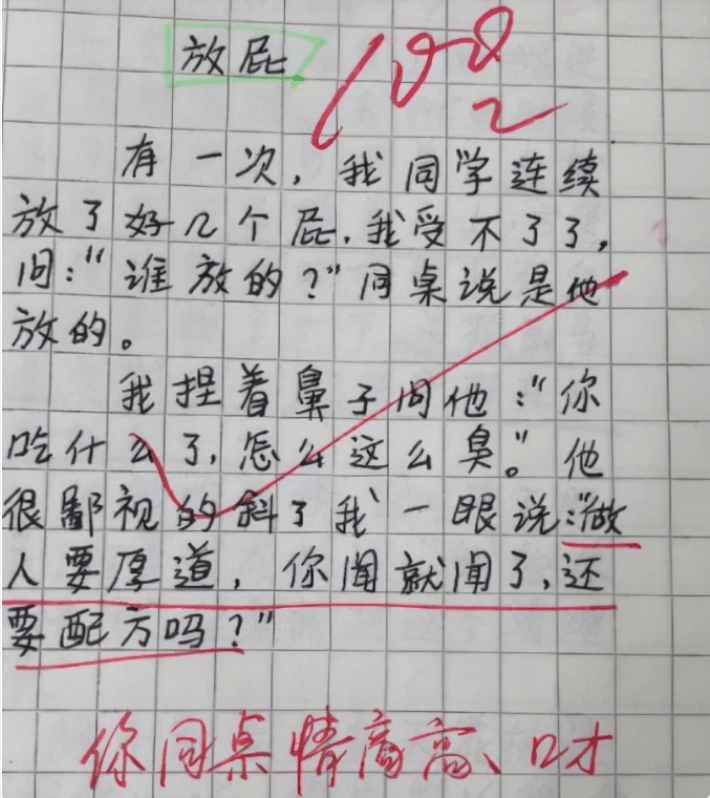 放屁
100
有一次,我同学连续
放了好几个屁.我受不了了,
问:“谁放的?”同桌说是他
放的。
我捏着鼻子问他:“你
吃什么了,怎么这么臭。”他
很鄙视的斜了我一眼说:“做
人要厚道,你闻就闻了,还
要配方吗?”
你同桌情商高、口才